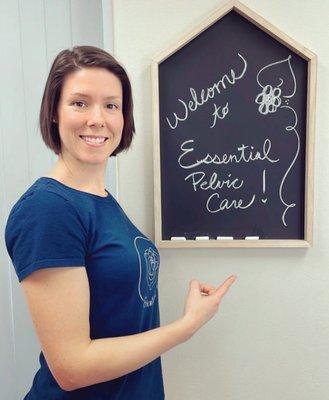 Welcome
to
Essential
Pelvic
Care!